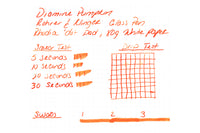 Diamine Pumpkin
Rohrer & Klinger Glass Pen
Rhodia Dot Pad, 80g White Paper
Smear Test
Drip Test
5 Seconds
10 Seconds
20 Seconds
30 Seconds
Swabs
1
2
3